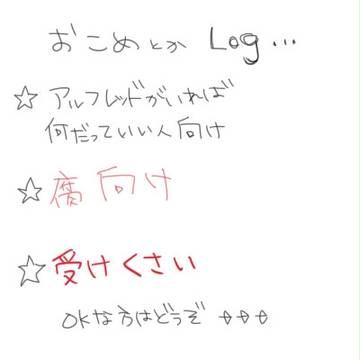 おこめとか Log...
☆ アルフレッドがいれば
何だっていい人向け
☆ 腐向け
☆ 受けくさい
OKな方はどうぞ →→→